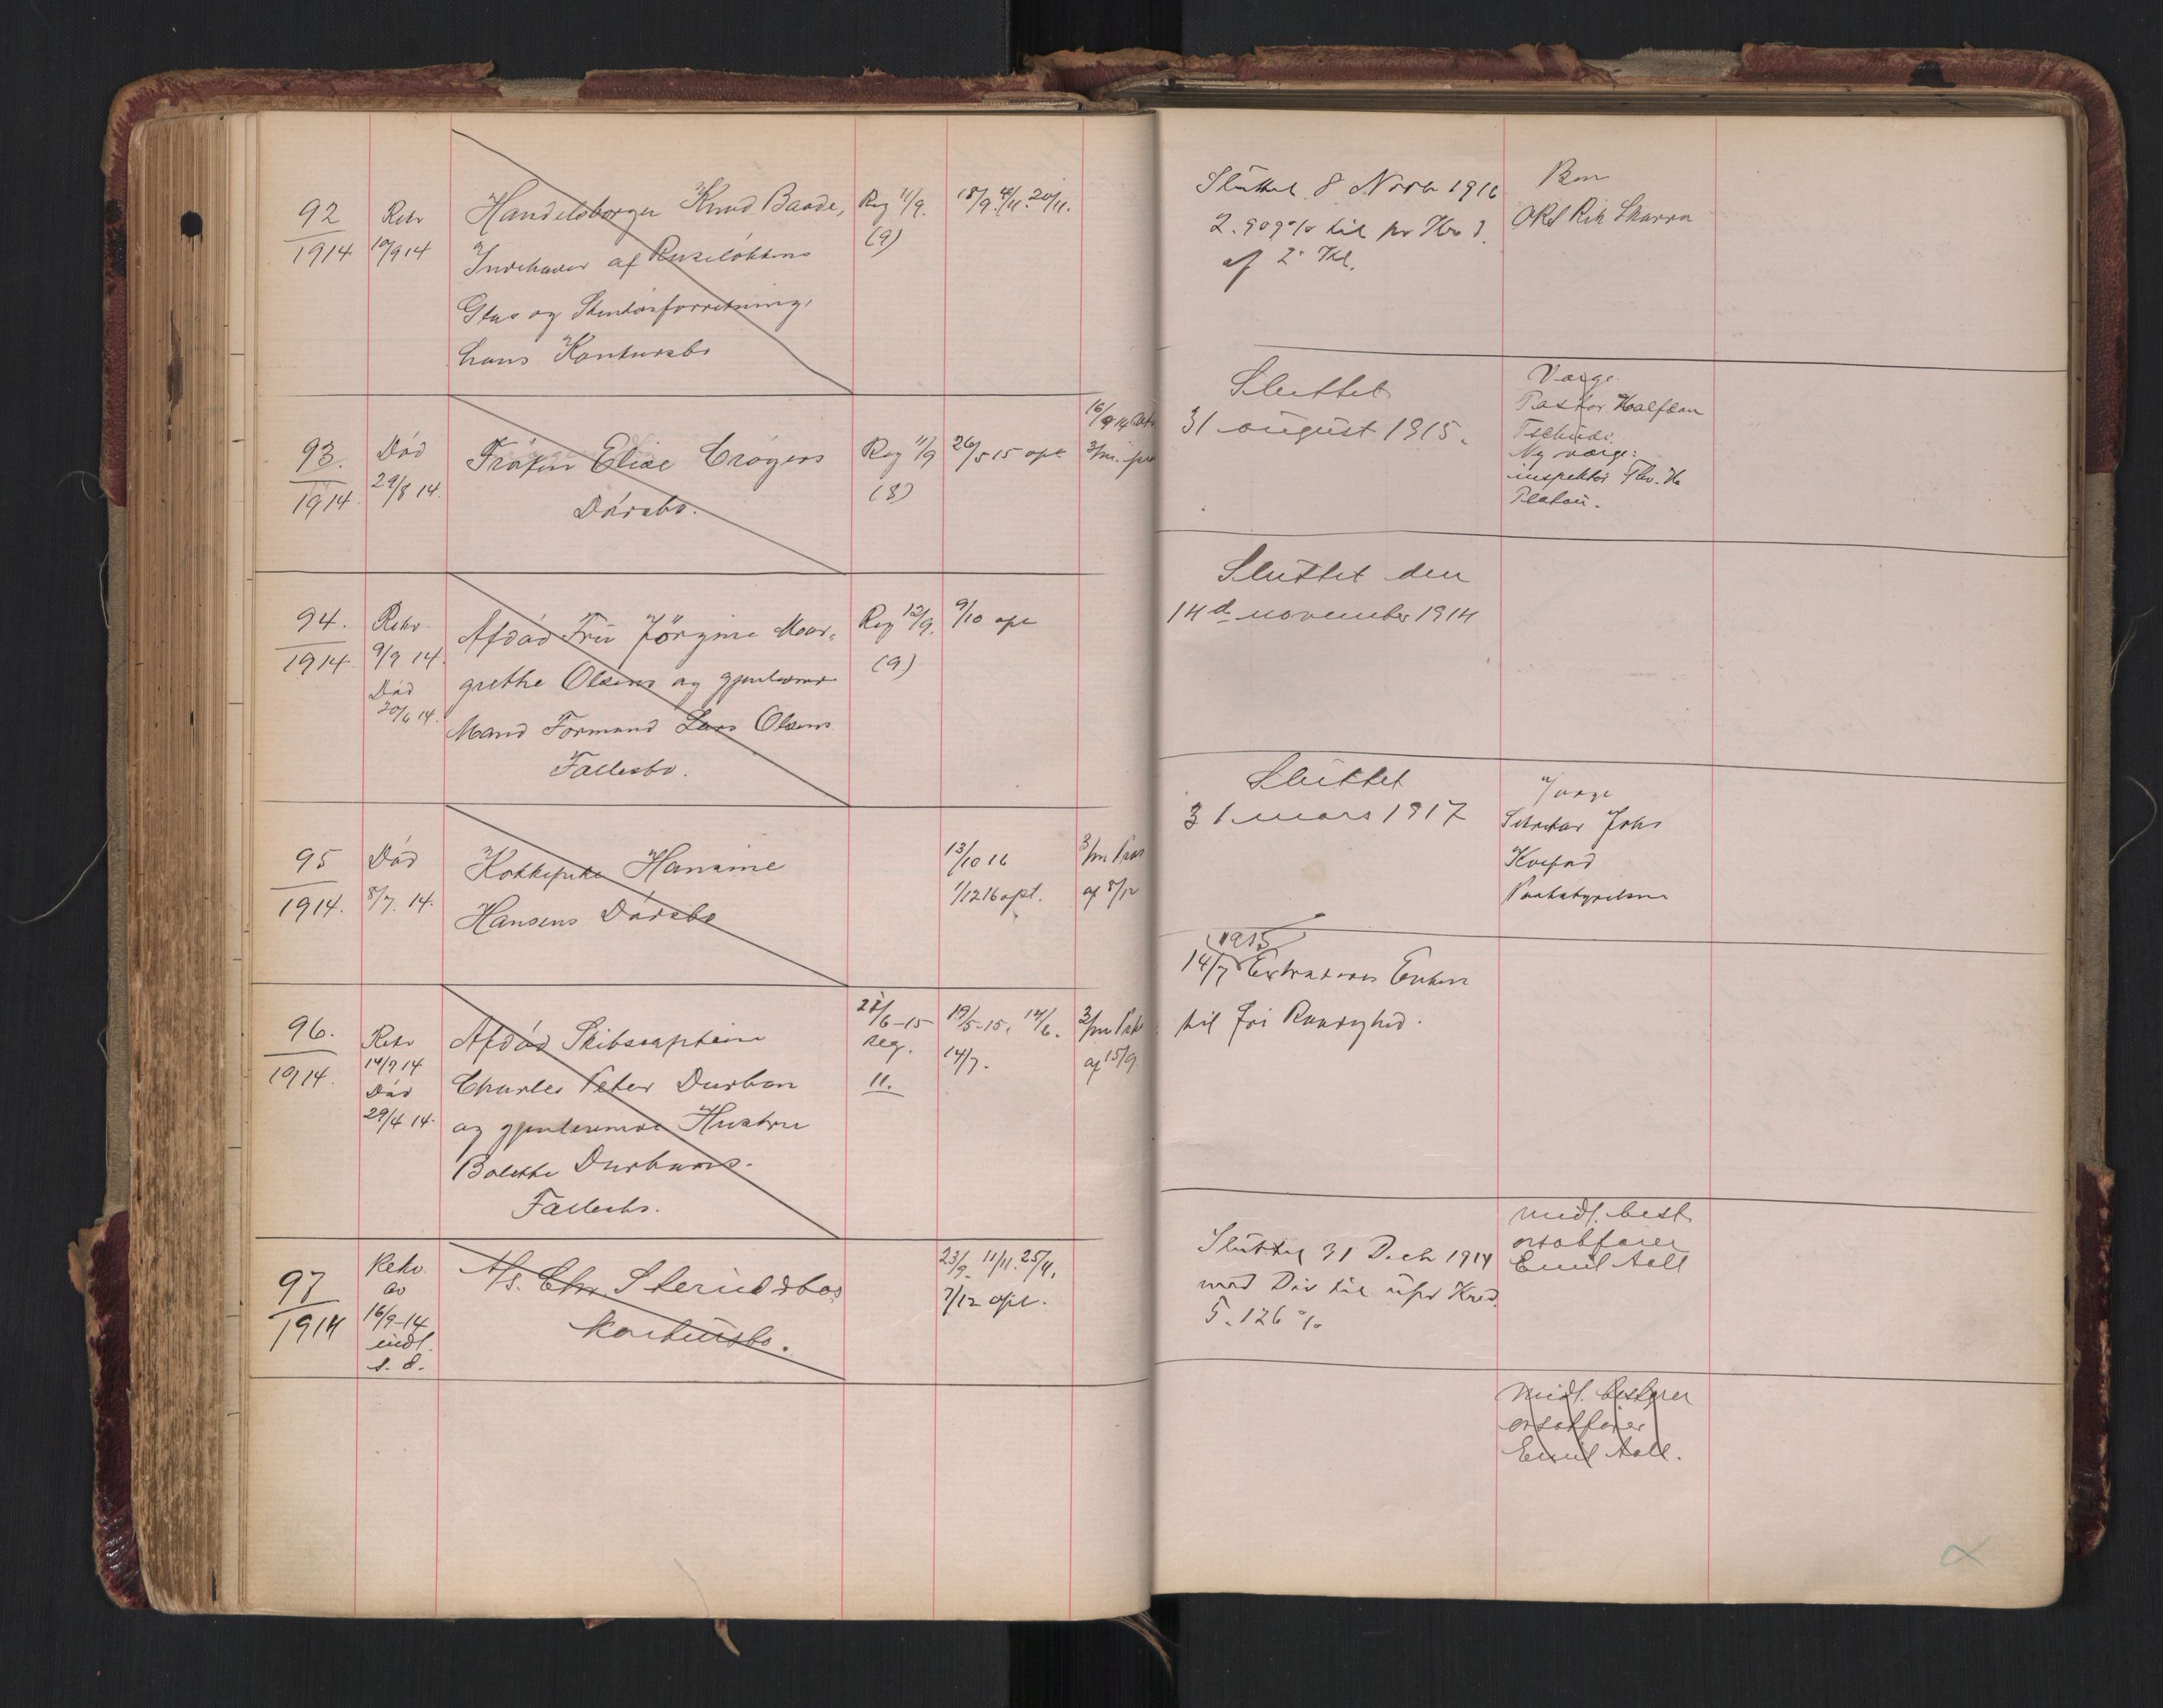 92
1914
Rekv
10/9 14
Handelsborger Knud Baade,
Indehaver af Ruseløkkens
Glas og Stentøiforretning,
hans Konkursbo
Reg 11/9.
(9)
18/9. 4/11. 20/11.
Sluttet 8 Novbr 1916
2.909 % til pr Kr
af Kl.
Ben
ORS Rik Skarra
93.
1914.
Død
29/8 14.
Frøken Elise Crøgers
Dødsbo.
Reg 11/9
(8)
26/5 15 opt
16/9 14
3/m.
Sluttet
31 august 1915.
Værge
Pastor Halfdan
Tschudi.
Ny værge:
inspektør Thv. H
Platou.
94.
1914.
Rekv.
9/9 14.
Død
20/6 14.
Afdød Frü Jörgine Mar-
grethe Olsens og gjenlevende
Mand Formand Lars Olsens
Fællesbo.
Reg 12/9.
(9)
9/10 opt
Sluttet den
14d november 1914
95
1914.
Død
8/7. 14.
Kokkepike Hansine
Hansens Dødsbo
13/10 16
1/12 16 opt.
3/m Prov
af 8/12
Sluttet
31 mars 1917
Værge
Sekretær Johs
96.
1914.
Rekv
14/9 14
Død
29/4 14.
Afdød Skibscaptein
Charles Peter Durban
og gjenlevende Hustru
Bolette Durbans.
Fællesbo.
22/6-15
reg.
11.
19/5-15, 14/6.
14/7.
3/m Prk
af 15/9
1915
14/7 Extraderes Enken
til fri Raadighed.
97
1914
Rekv.
av
16/9-14
indl.
s. d.
A/s. Chr. Sterudsbos
konkursbo.
23/9. 11/11. 25/11.
7/12 opt.
Sluttet 31 Decbr 1914
med Div til üpr Kred.
5.126 %
midl. best.
orsakfører
Emil Aall
midl. bestyrer
orsakfører
Emil Aall.